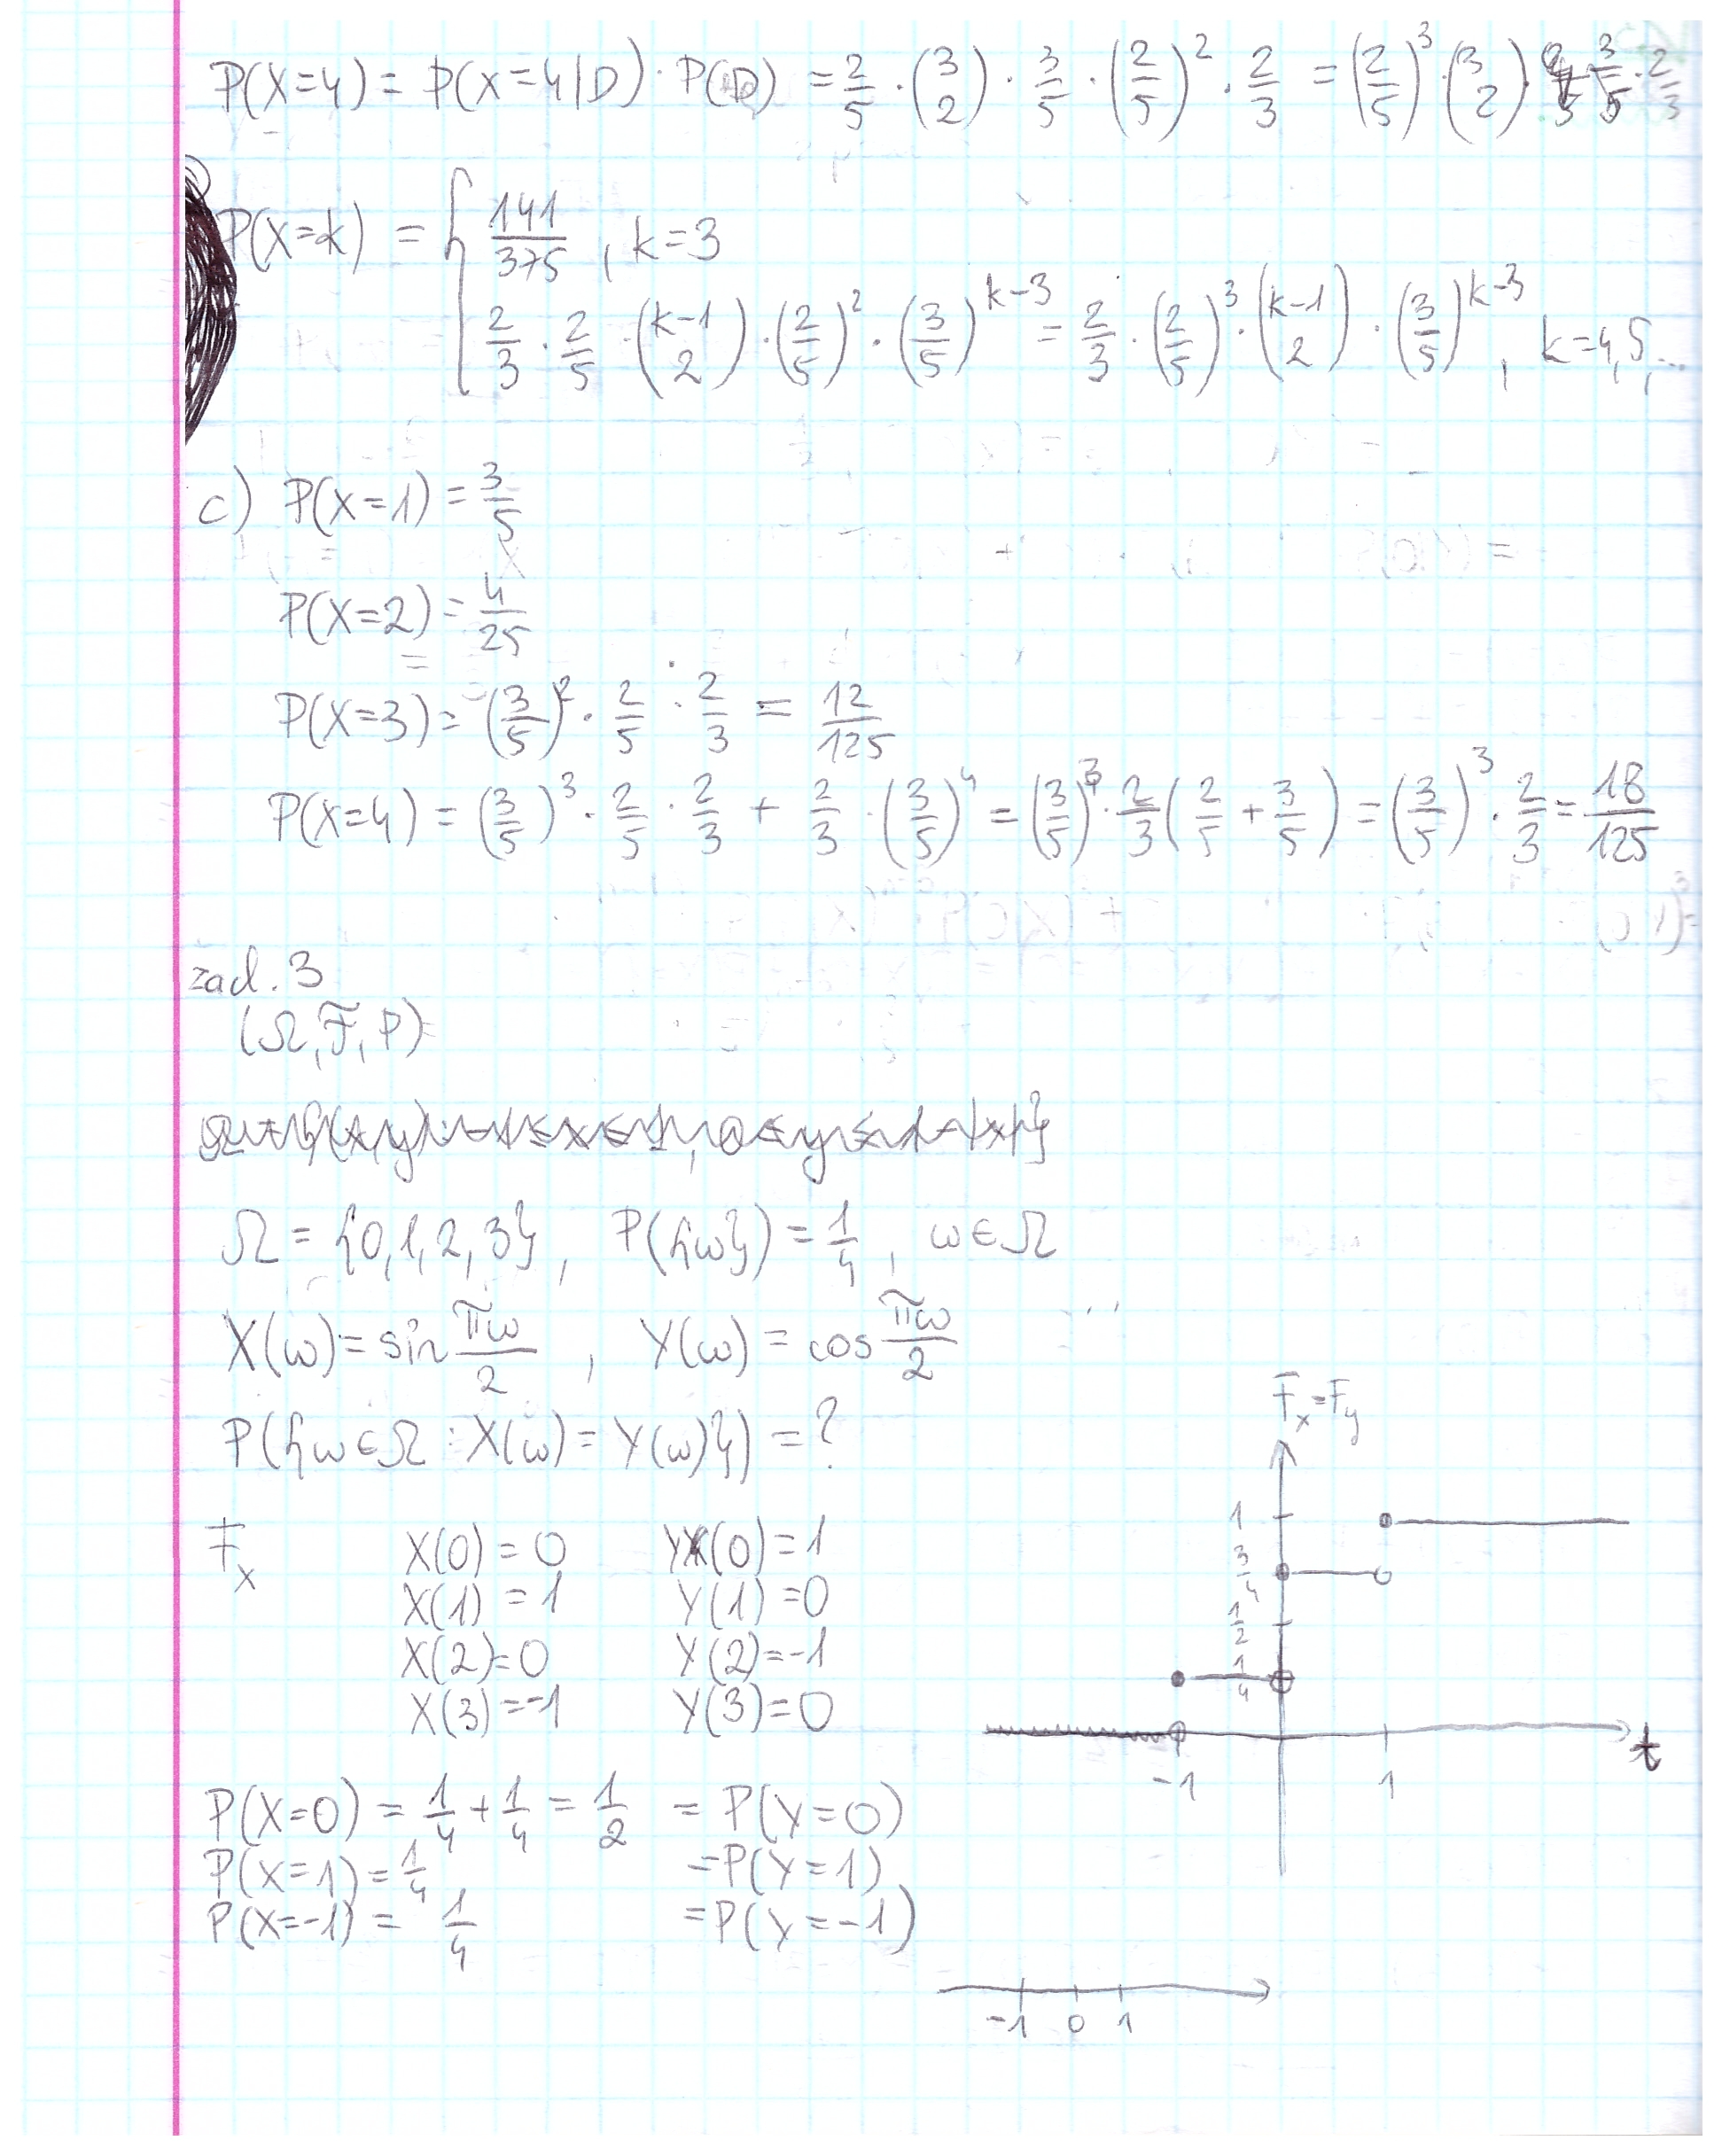 P(X=4) = P(X=4|D) · P(D) = 2/5 · (3 2) · 3/5 · (2/5)^2 · 2/3 = (2/5)^3 · (3 2) · 3/5 · 2/3
P(X=k) = { 141/375 , k=3
2/3 · 2/5 · (k-1 2) · (2/5)^2 · (3/5)^{k-3} = 2/3 · (2/5)^3 · (k-1 2) · (3/5)^{k-3} , k=4,5,...
c) P(X=1) = 3/5
P(X=2) = 4/25
P(X=3) = (3/5)^2 · 2/5 · 2/3 = 12/125
P(X=4) = (3/5)^3 · 2/5 · 2/3 + 2/3 · (3/5)^4 = (3/5)^3 · 2/3 (2/5 + 3/5) = (3/5)^3 · 2/3 = 18/125
zad. 3
(Ω, F, P)
Ω = {(x,y) : -1≤x≤1, 0≤y≤1-|x|}
Ω = {0,1,2,3} , P({ω}) = 1/4 , ω∈Ω
X(ω) = sin πω/2 , Y(ω) = cos πω/2
P({ω∈Ω : X(ω) = Y(ω)}) = ?
F_X
X(0) = 0 Y(0) = 1
X(1) = 1 Y(1) = 0
X(2) = 0 Y(2) = -1
X(3) = -1 Y(3) = 0
P(X=0) = 1/4 + 1/4 = 1/2 = P(Y=0)
P(X=1) = 1/4 = P(Y=1)
P(X=-1) = 1/4 = P(Y=-1)
F_x = F_y
1
3/4
1/2
1/4
t
-1 1
-1 0 1